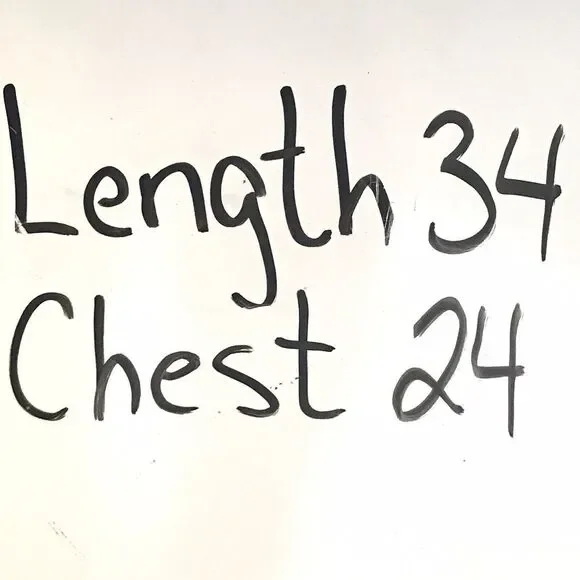 Length 34
Chest 24